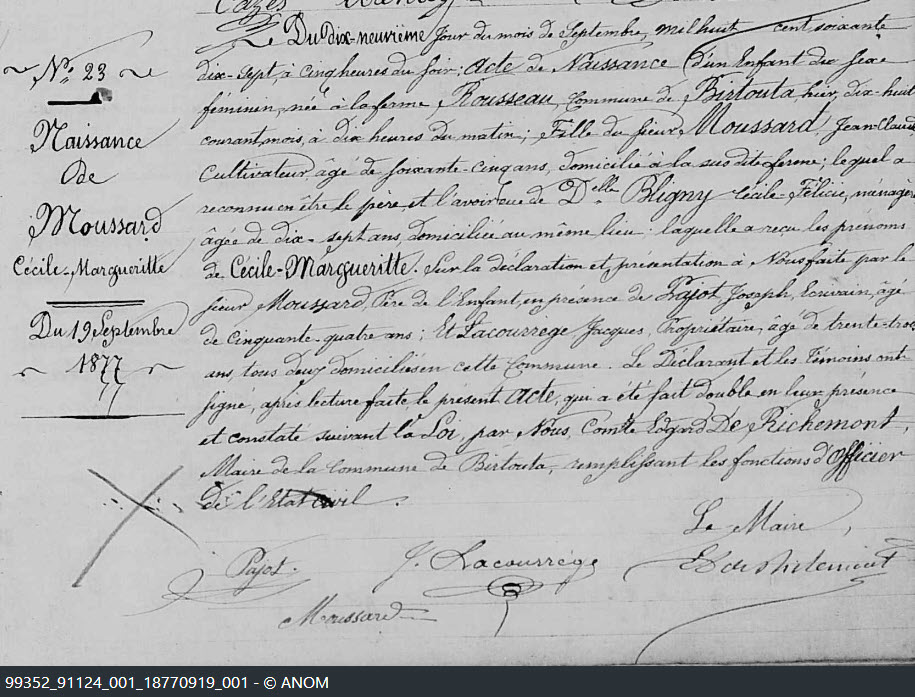 Nº 23
Naissance
De
Moussard
Cécile-Margueritte
Du 19 Septembre
1877
Du dix-neuvième jour du mois de Septembre, mil huit cent soixante
dix-sept, à cinq heures du soir; Acte de Naissance d'un Enfant du sexe
féminin, née à la ferme Rousseau, Commune de Birtouta, hier, dix-huit
courant mois, à dix heures du matin; Fille du sieur Moussard, Jean Claude
Cultivateur, âgé de soixante-cinq ans, domicilié à la susdite ferme; lequel a
reconnu en être le père, et l'avoir eue de Delle Bligny Cécile-Félicie, ménagère
âgée de dix-sept ans, domiciliée au même lieu: laquelle a reçu les prénoms
de Cécile-Margueritte. Sur la déclaration et présentation à Nous faite par le
sieur Moussard, Père de l'Enfant, en présence de Pajot, Joseph, Ecrivain, âgé
de Cinquante-quatre ans; Et Lacourrège Jacques, Propriétaire, âgé de trente-trois
ans, tous deux domiciliés en cette Commune. Le Déclarant et les Témoins ont
signé, après lecture faite, le présent Acte, qui a été fait double en leur présence
et constaté suivant la Loi, par Nous, Comte Edgard De Richemont,
Maire de la Commune de Birtouta, remplissant les fonctions d'Officier
de l'Etat civil.
Le Maire,
Pajot.
J. Lacourrège
Moussard
99352_91124_001_18770919_001 - © ANOM